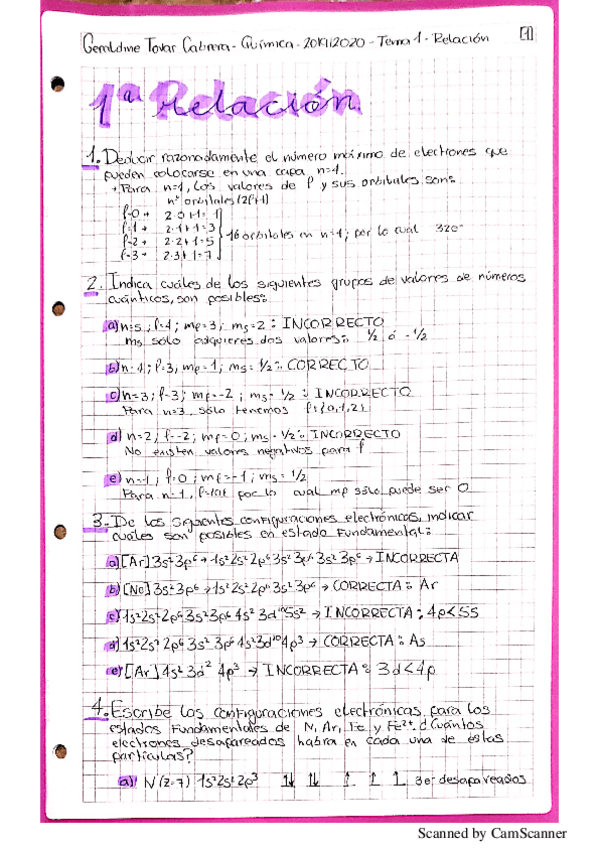 Geraldine Tovar Cabrera - Química - 2019/2020 - Tema 1 - Relación
1
1ª Relación
1. Deducir razonadamente el número máximo de electrones que
pueden colocarse en una capa n=4.
→ Para n=4, los valores de l y sus orbitales son:
nº orbitales (2l+1)
l=0 → 2·0+1=1
l=1 → 2·1+1=3
l=2 → 2·2+1=5
l=3 → 2·3+1=7
16 orbitales en n=4; por lo cual 32e⁻
2. Indica cuáles de los siguientes grupos de valores de números
cuánticos, son posibles:
a) n=5; l=4; ml=3; ms=2: INCORRECTO
ms sólo adquiere dos valores: 1/2 ó -1/2
b) n=4; l=3; ml=1; ms=1/2: CORRECTO
c) n=3; l=3; ml=-2; ms=1/2: INCORRECTO
Para n=3 sólo tenemos l={0,1,2}
d) n=2; l=-2; ml=0; ms=1/2: INCORRECTO
No existen valores negativos para l
e) n=1; l=0; ml=-1; ms=1/2
Para n=1, l={0} por lo cual ml sólo puede ser 0
3. De las siguientes configuraciones electrónicas, indicar
cuáles son posibles en estado fundamental:
a) [Ar] 3s²3p⁶ → 1s²2s²2p⁶3s²3p⁶3s²3p⁶ → INCORRECTA
b) [Ne] 3s²3p⁶ → 1s²2s²2p⁶3s²3p⁶ → CORRECTA: Ar
c) 1s²2s²2p⁶3s²3p⁶4s²3d¹⁰5s² → INCORRECTA: 4p<5s
d) 1s²2s²2p⁶3s²3p⁶4s²3d¹⁰4p³ → CORRECTA: As
e) [Ar] 4s²3d²4p³ → INCORRECTA: 3d<4p
4. Escribe las configuraciones electrónicas para los
estados fundamentales de N, Ar, Fe y Fe²⁺. ¿Cuántos
electrones desapareados habrá en cada una de estas
partículas?
a) N (Z=7) 1s²2s²2p³ ⇅ ⇅ ↑ ↑ ↑ 3e⁻ desapareados
Scanned by CamScanner